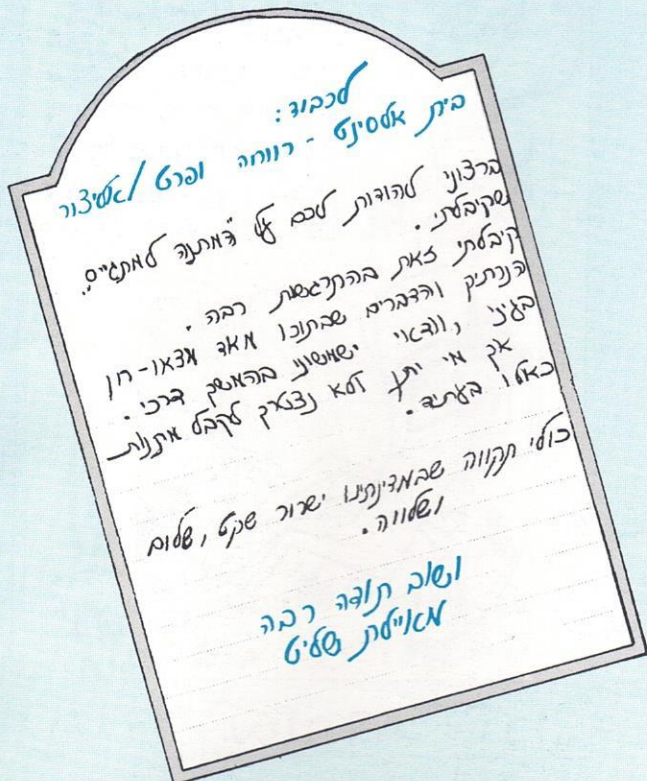 לכבוד:
בית אלסינט - רווחה ופרט /אליצור
ברצוני להודות לכם על "המתנה למתגייס"
שקיבלתי.
קיבלתי זאת בהתרגשות רבה.
הנרתיק והדברים שבתוכו מאד מצאו-חן
בעיני, וודאי ישמשוני בהמשך דרכי.
אך מי יתן ולא נצטרך לקבל מתנות
כאלו בעתיד.
כולי תקווה שבמדינתינו ישרור שקט, שלום
ושלווה.
ושוב תודה רבה
מאיילת שליט